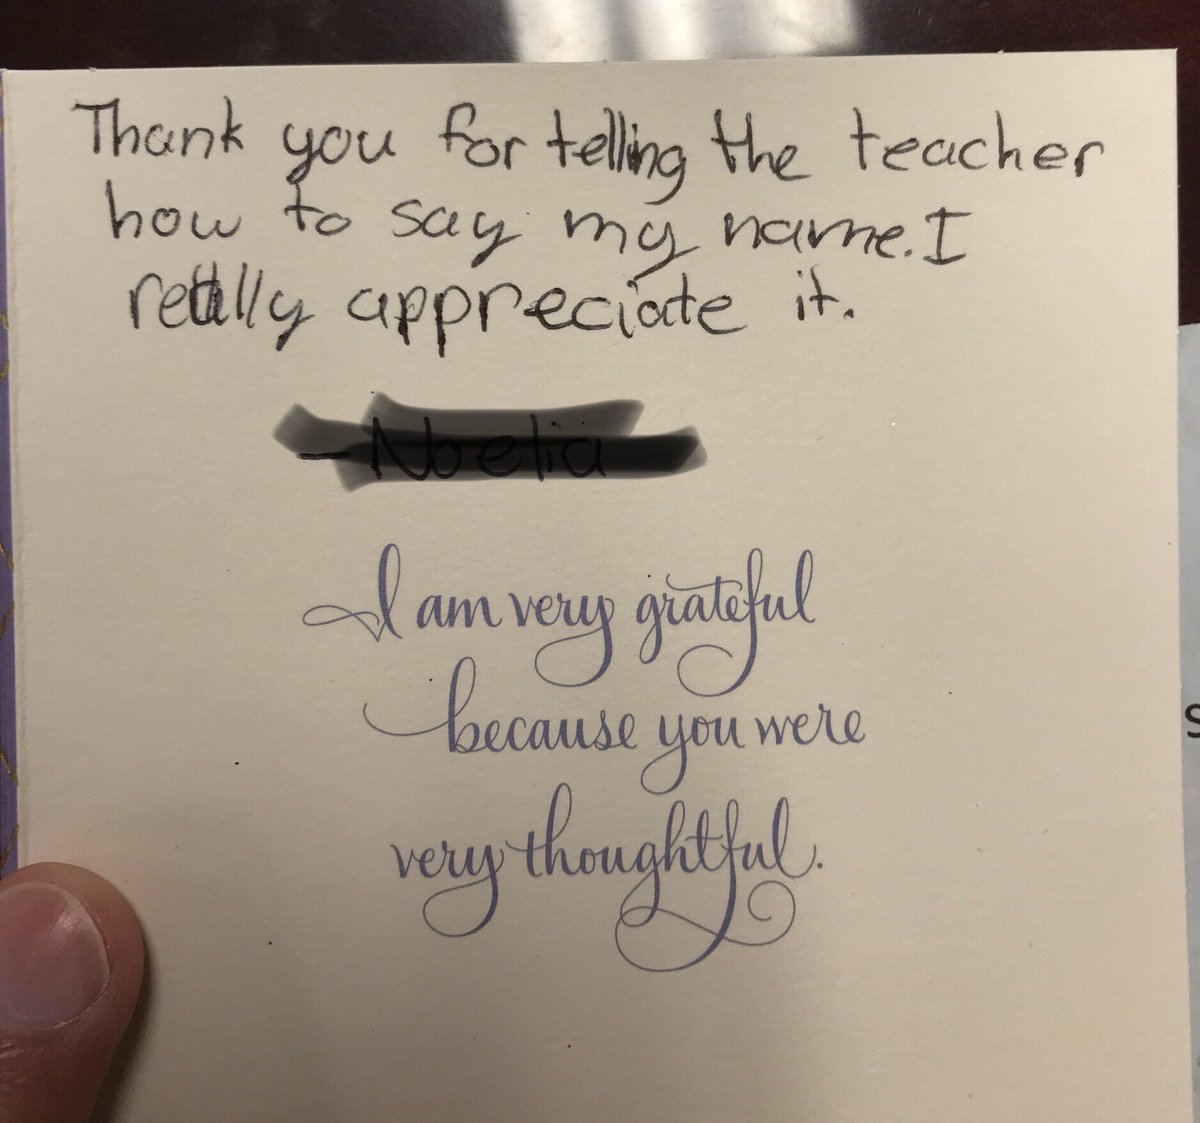 Thank you for telling the teacher
how to say my name. I
really appreciate it.
- Noelia
I am very grateful
because you were
very thoughtful.